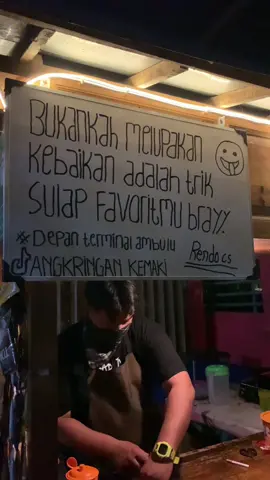 Bukankah melupakan
kebaikan adalah trik
sulap favoritmu brayy
* Depan terminal ambulu
Rendo cs
ANGKRINGAN KEMAKI